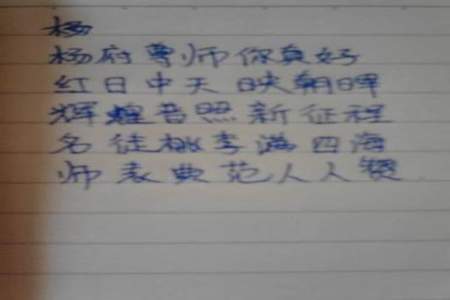 杨
杨府尊师你真好
红日中天映朝晖
辉煌普照新征程
名徒桃李满四海
师表典范人人赞